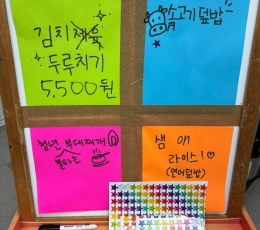 김치제육
두루치기
5,500원
소고기덮밥
청년 부대찌개
불타는
샘 on
라이스!♡
(연어덮밥)